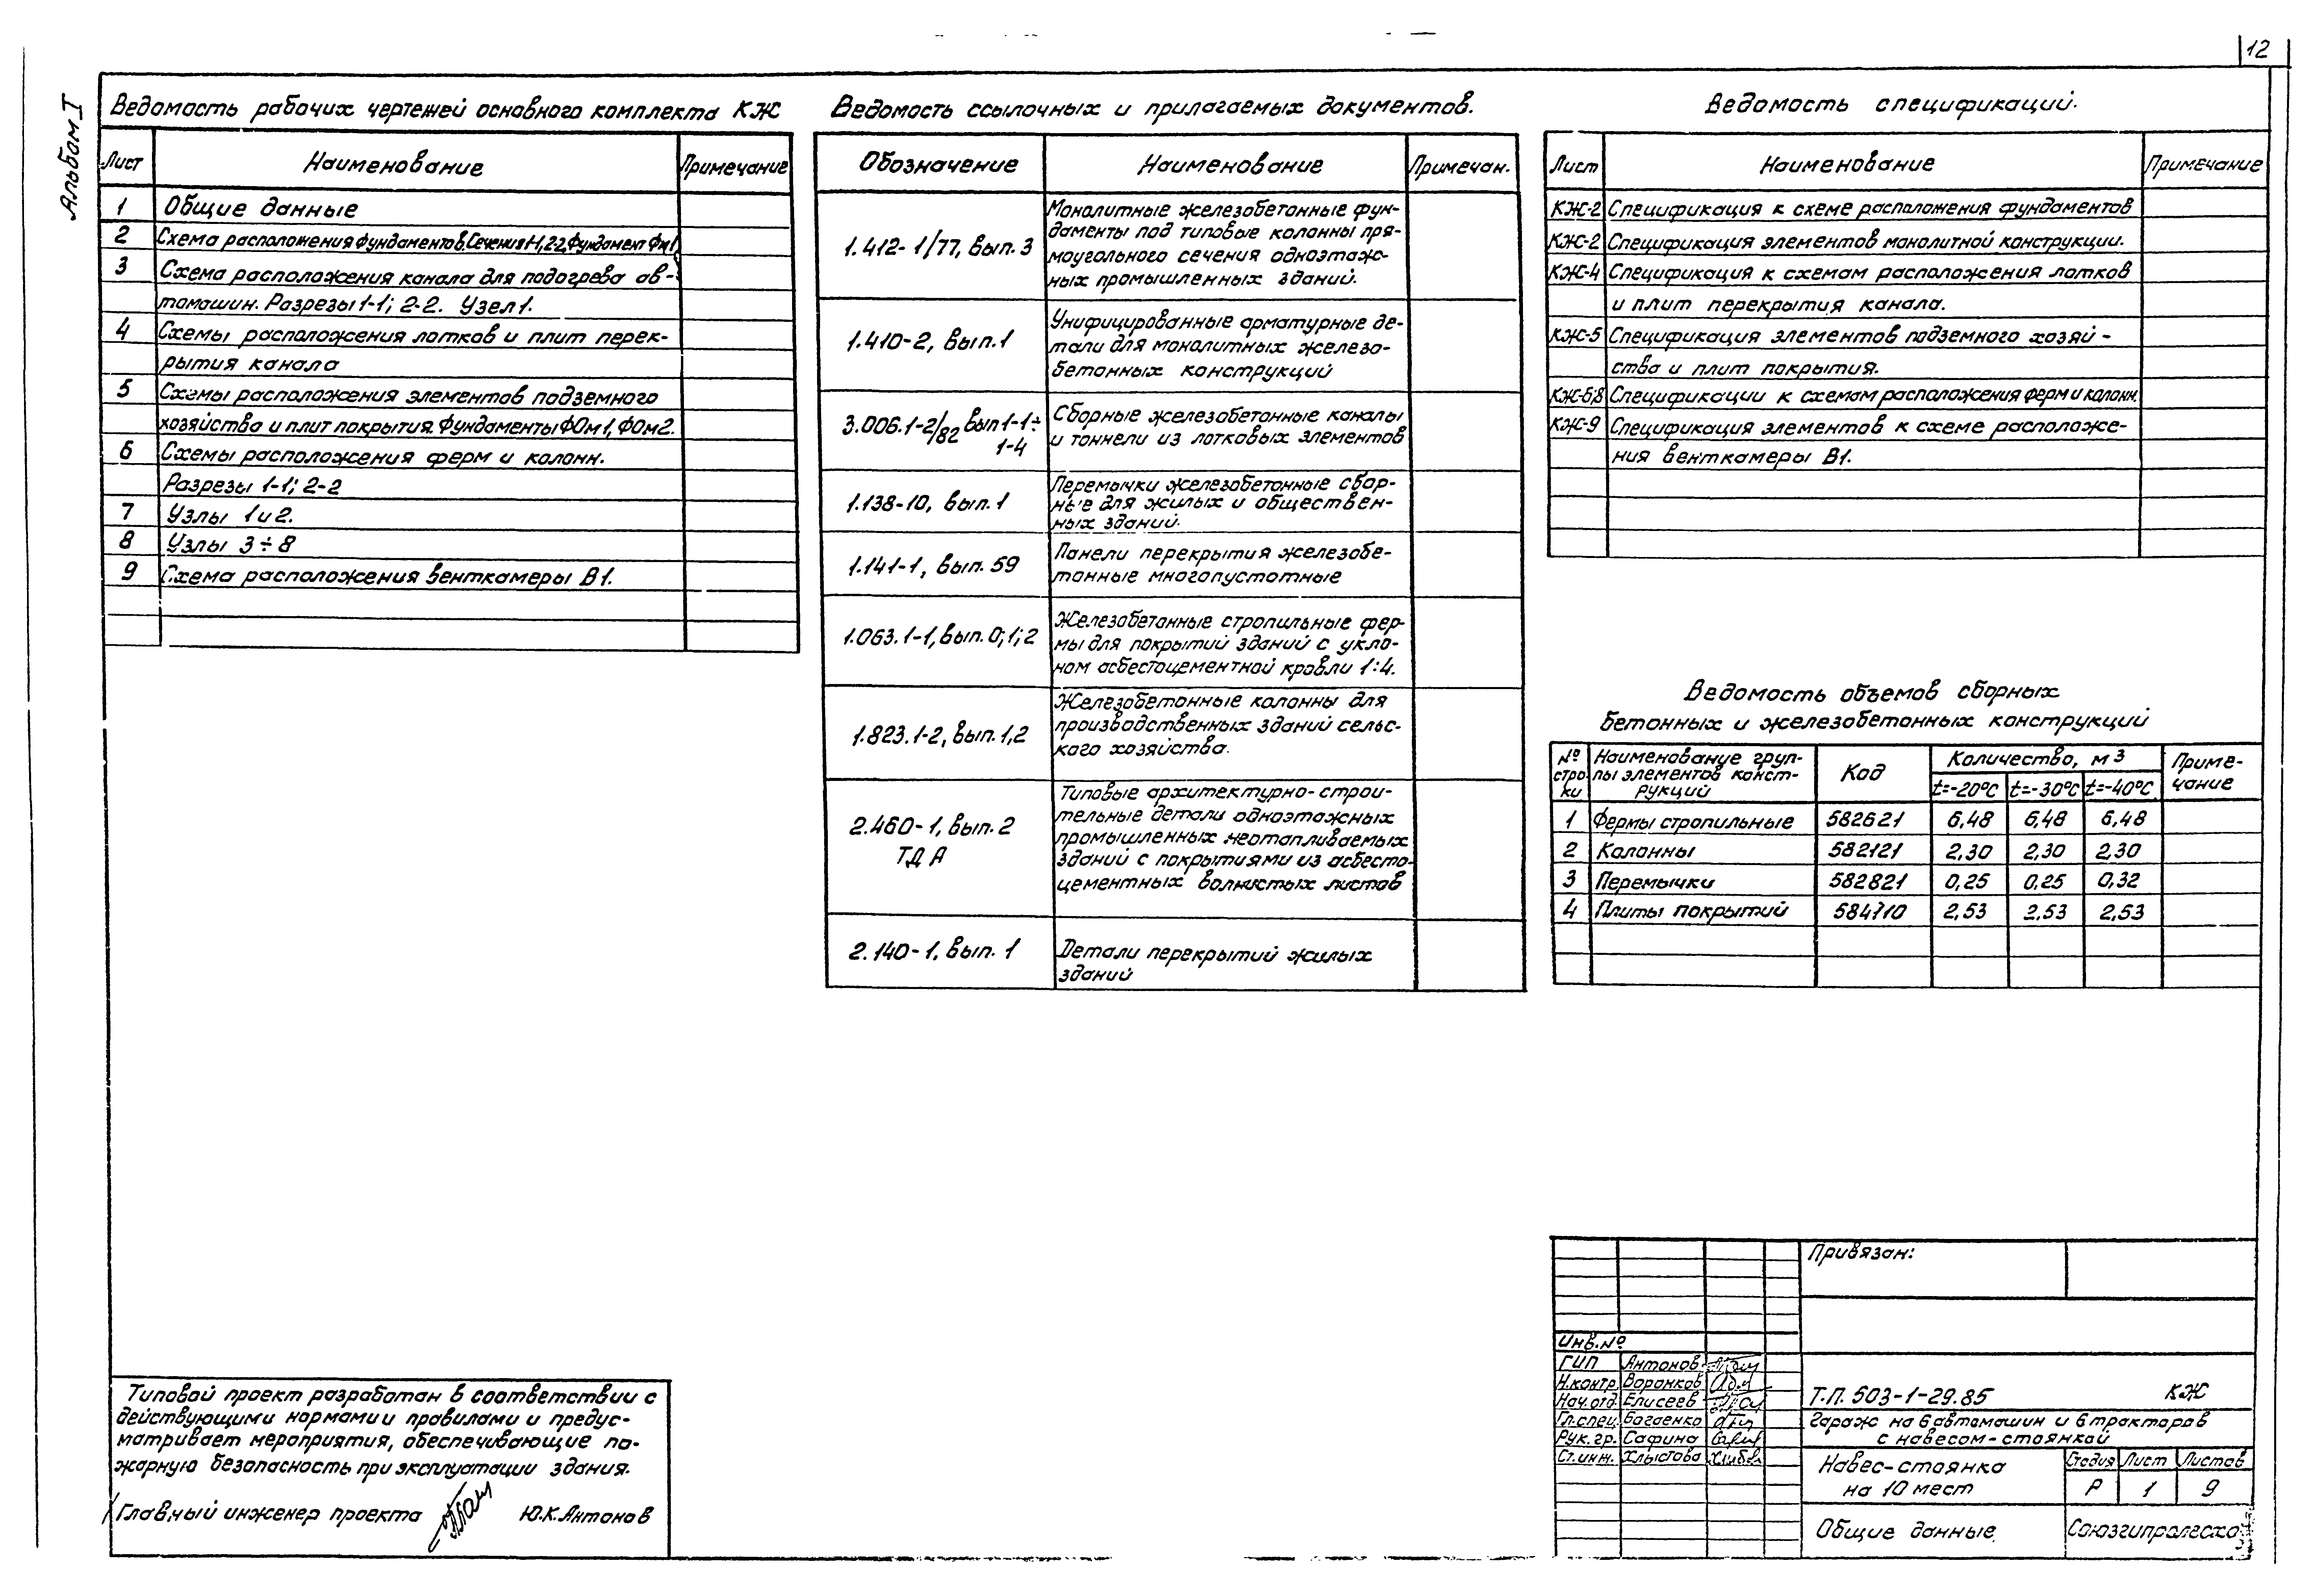 12
Альбом I
Ведомость рабочих чертежей основного комплекта КЖ
Лист Наименование Примечание
1 Общие данные
2 Схема расположения фундаментов. Сечения 1-1, 2-2, Фундамент Фм1
3 Схема расположения канала для подогрева ав-
томашин. Разрезы 1-1; 2-2. Узел 1.
4 Схемы расположения лотков и плит перек-
рытия канала
5 Схемы расположения элементов подземного
хозяйства и плит покрытия. Фундаменты ФОм1, ФОм2.
6 Схемы расположения ферм и колонн.
Разрезы 1-1; 2-2
7 Узлы 1 и 2.
8 Узлы 3÷8
9 Схема расположения венткамеры В1.
Ведомость ссылочных и прилагаемых документов.
Обозначение Наименование Примечан.
1.412-1/77, вып. 3
Монолитные железобетонные фун-
даменты под типовые колонны пря-
моугольного сечения одноэтаж-
ных промышленных зданий.
1.410-2, вып. 1
Унифицированные арматурные де-
тали для монолитных железо-
бетонных конструкций
3.006.1-2/82 вып 1-1÷
1-4
Сборные железобетонные каналы
и тоннели из лотковых элементов
1.138-10, вып. 1
Перемычки железобетонные сбор-
ные для жилых и обществен-
ных зданий.
1.141-1, вып. 59
Панели перекрытия железобе-
тонные многопустотные
1.063.1-1, вып. 0;1;2
Железобетонные стропильные фер-
мы для покрытий зданий с укло-
ном асбестоцементной кровли 1:4.
1.823.1-2, вып. 1,2
Железобетонные колонны для
производственных зданий сельс-
кого хозяйства.
2.460-1, вып. 2
ТДА
Типовые архитектурно-строи-
тельные детали одноэтажных
промышленных неотапливаемых
зданий с покрытиями из асбесто-
цементных волнистых листов
2.140-1, вып. 1
Детали перекрытий жилых
зданий
Ведомость спецификаций.
Лист Наименование Примечание
КЖ-2 Спецификация к схеме расположения фундаментов
КЖ-2 Спецификация элементов монолитной конструкции.
КЖ-4 Спецификация к схемам расположения лотков
и плит перекрытия канала.
КЖ-5 Спецификация элементов подземного хозяй-
ства и плит покрытия.
КЖ-6;8 Спецификации к схемам расположения ферм и колонн.
КЖ-9 Спецификация элементов к схеме расположе-
ния венткамеры В1.
Ведомость объемов сборных
бетонных и железобетонных конструкций
№ стро ки Наименование груп- пы элементов конст- рукций Код Количество, м3 Приме- чание
t=-20°C t=-30°C t=-40°C
1 Фермы стропильные 582621 6,48 6,48 6,48
2 Колонны 582121 2,30 2,30 2,30
3 Перемычки 582821 0,25 0,25 0,32
4 Плиты покрытий 584710 2,53 2,53 2,53
Типовой проект разработан в соответствии с
действующими нормами и правилами и предус-
матривает мероприятия, обеспечивающие по-
жарную безопасность при эксплуатации здания.
Главный инженер проекта Ю.К.Антонов
Привязан:
Инв.№
ГИП Антонов
Н.контр. Воронков
Нач.отд. Елисеев
Гл.спец. Богаенко
Рук.гр. Сафина
Ст.инж. Хлыстова
Т.П. 503-1-29.85 КЖ
Гараж на 6 автомашин и 6 тракторов
с навесом-стоянкой
Навес-стоянка
на 10 мест
Стадия Лист Листов
Р 1 9
Общие данные Союзгипролесхоз